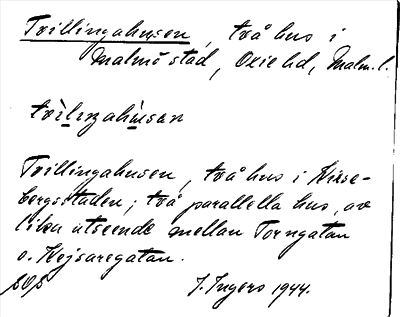 Tvillingahusen, två hus i
Malmö stad, Oxie hd, Malm. l.
Tvillingahusen, två hus i Kirse-
bergsstaden; två parallella hus, av
lika utseende mellan Torngatan
o. Kejsaregatan.
J. Ingers 1944.